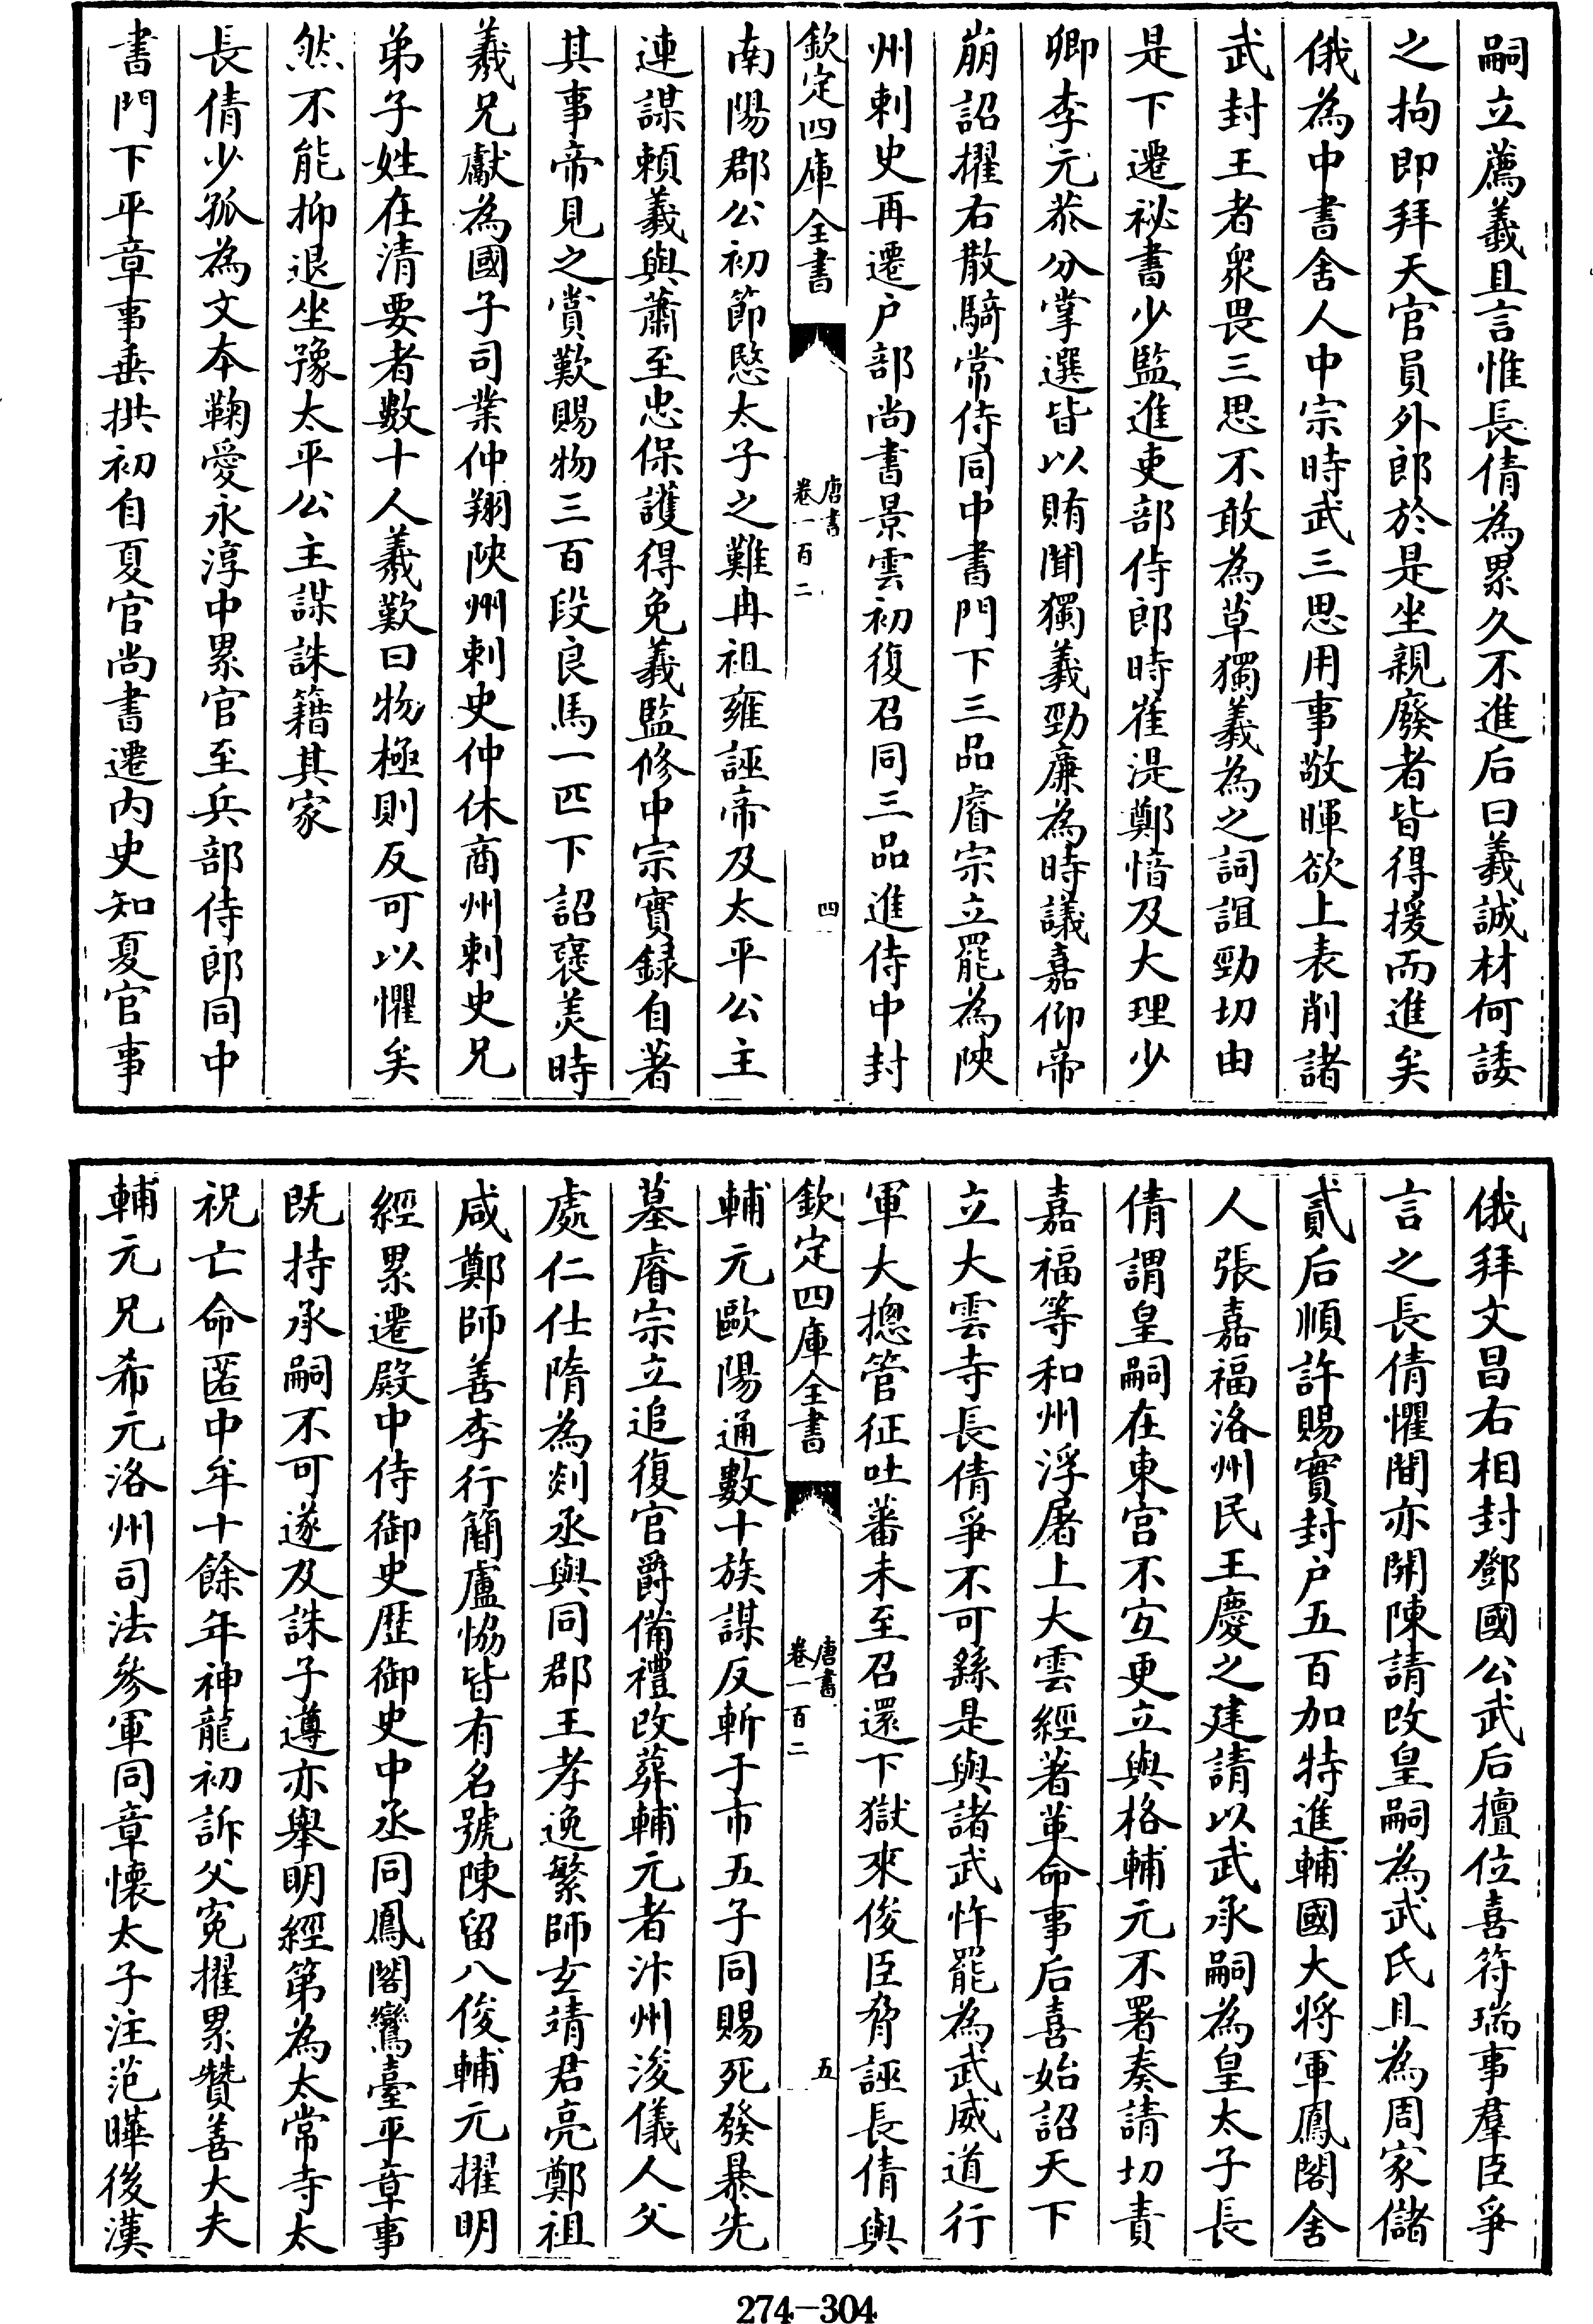 嗣立薦羲且言惟長倩為累久不進后曰羲誠材何諉
之拘即拜天官員外郎於是坐親廢者皆得援而進矣
俄為中書舍人中宗時武三思用事敬暉欲上表削諸
武封王者衆畏三思不敢為草獨羲為之詞誼勁切由
是下遷祕書少監進吏部侍郎時崔湜鄭愔及大理少
卿李元恭分掌選皆以賄聞獨羲勁廉為時議嘉仰帝
崩詔擢右散騎常侍同中書門下三品睿宗立罷為陜
州刺史再遷户部尚書景雲初復召同三品進侍中封
欽定四庫全書
唐書
卷一百二
四
南陽郡公初節愍太子之難冉祖雍誣帝及太平公主
連謀賴羲與蕭至忠保護得免羲監修中宗實録自著
其事帝見之賞歎賜物三百段良馬一匹下詔襃美時
羲兄獻為國子司業仲翔陜州刺史仲休商州刺史兄
弟子姓在清要者數十人羲歎曰物極則反可以懼矣
然不能抑退坐豫太平公主謀誅籍其家
長倩少孤為文本鞠愛永淳中累官至兵部侍郎同中
書門下平章事垂拱初自夏官尚書遷内史知夏官事
俄拜文昌右相封鄧國公武后擅位喜符瑞事羣臣爭
言之長倩懼間亦開陳請改皇嗣為武氏且為周家儲
貳后順許賜實封户五百加特進輔國大將軍鳳閣舍
人張嘉福洛州民王慶之建請以武承嗣為皇太子長
倩謂皇嗣在東宫不宐更立與格輔元不署奏請切責
嘉福等和州浮屠上大雲經著革命事后喜始詔天下
立大雲寺長倩爭不可繇是與諸武忤罷為武威道行
軍大摠管征吐蕃未至召還下獄來俊臣脅誣長倩與
欽定四庫全書
唐書
卷一百二
五
輔元歐陽通數十族謀反斬于市五子同賜死發暴先
墓睿宗立追復官爵備禮改葬輔元者汴州浚儀人父
處仁仕隋為剡丞與同郡王孝逸繁師玄靖君亮鄭祖
咸鄭師善李行簡盧協皆有名號陳留八俊輔元擢明
經累遷殿中侍御史歷御史中丞同鳳閣鸞臺平章事
既持承嗣不可遂及誅子遵亦舉明經第為太常寺太
祝亡命匿中牟十餘年神龍初訴父寃擢累贊善大夫
輔元兄希元洛州司法參軍同章懷太子注范曄後漢
274-304